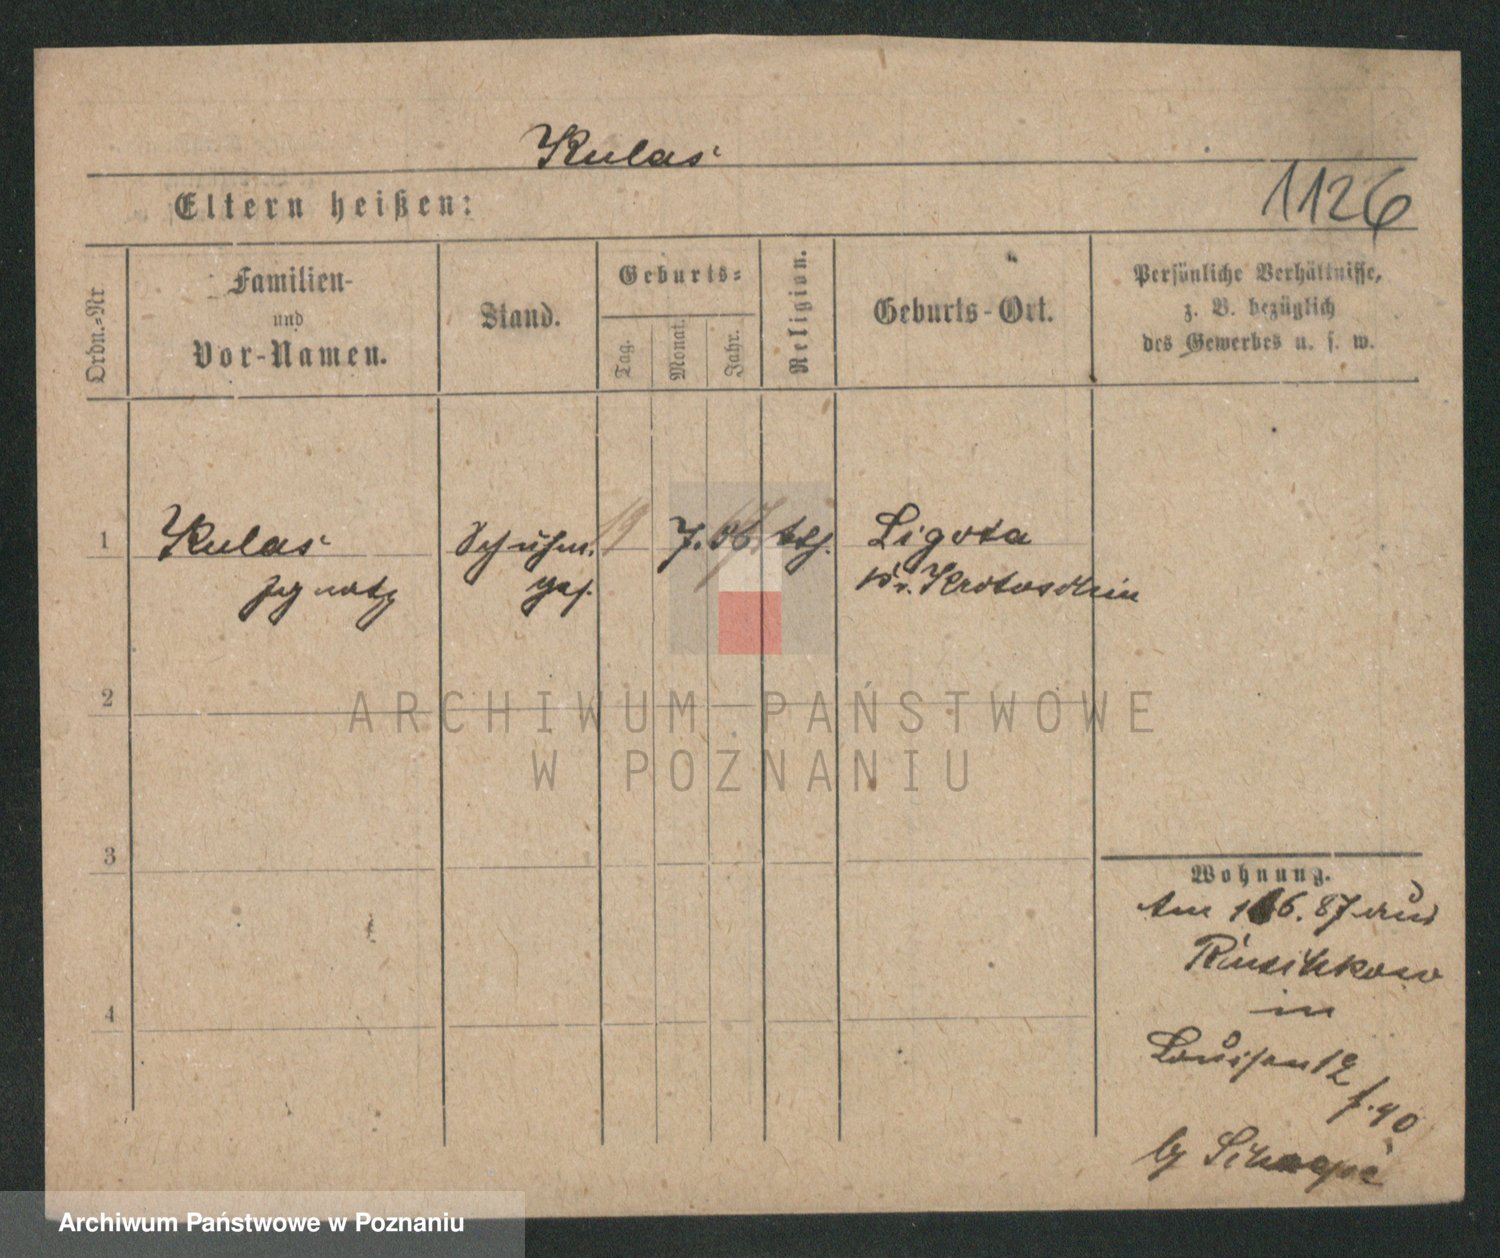 Kulas
Eltern heißen:
1126
Ordn.-Nr
Familien-
und
Vor-Namen.
Stand.
Geburts-
Tag.
Monat.
Jahr.
Religion.
Geburts-Ort.
Persönliche Verhältnisse,
z. B. bezüglich
des Gewerbes u. s. w.
1
Kulas
Ignatz
Schuhm.
ges.
19
7.
kth.
Ligota
Kr. Krotoschin
2
3
4
Wohnung.
Am 87 aus
in
Louisen 12
f. 90
by
ARCHIWUM PAŃSTWOWE
W POZNANIU
Archiwum Państwowe w Poznaniu